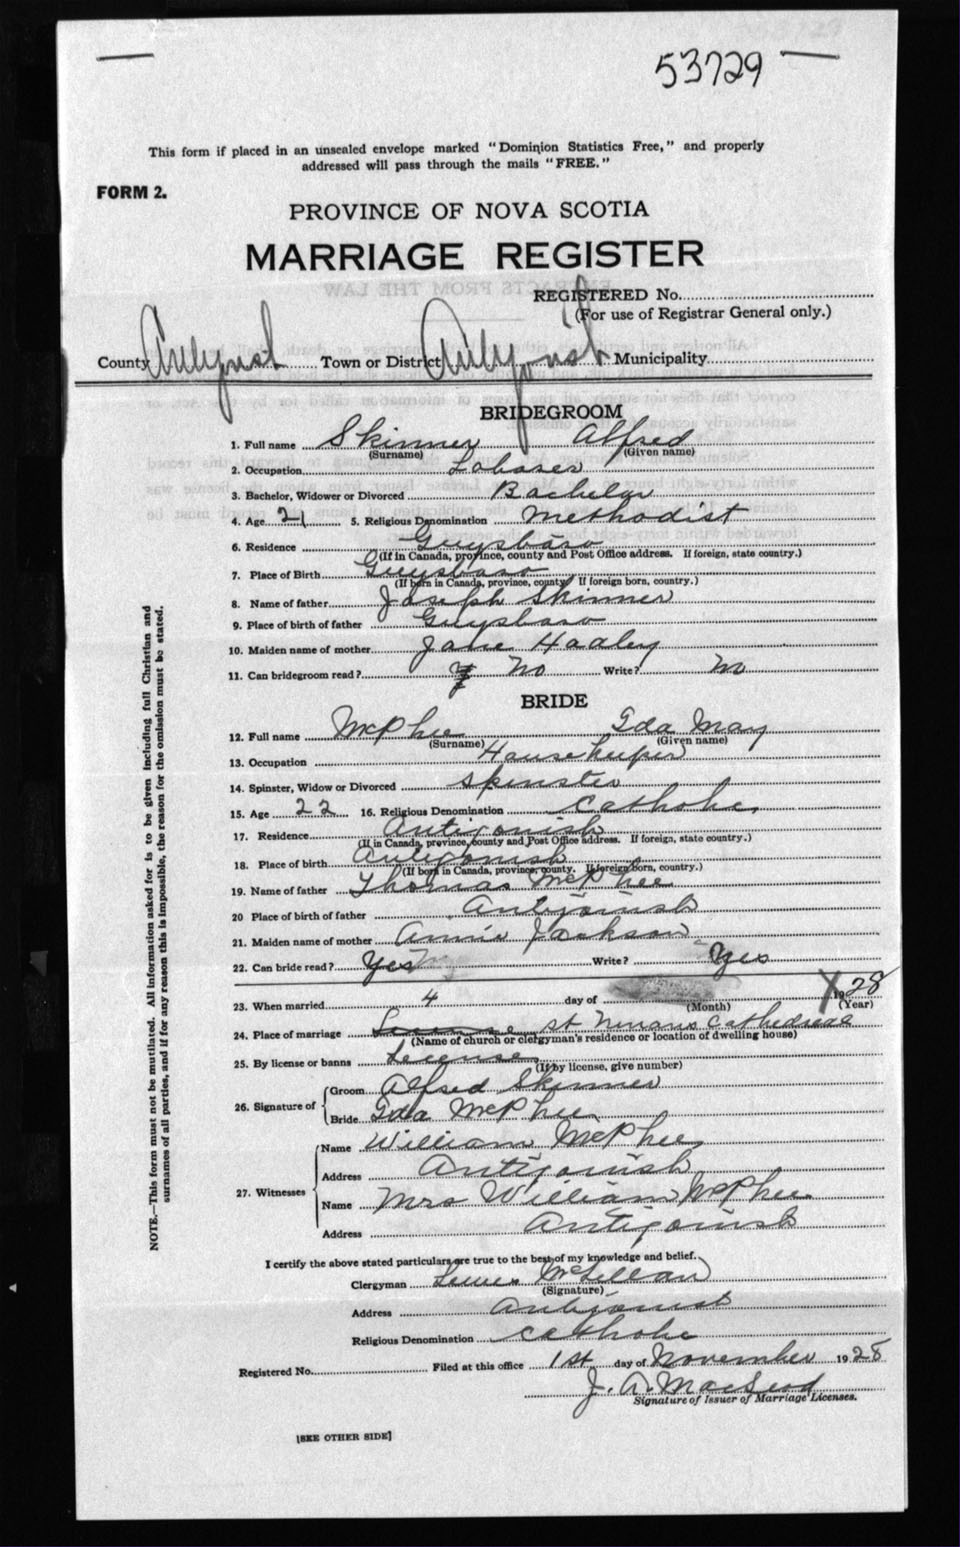 53729
This form if placed in an unsealed envelope marked "Dominion Statistics Free," and properly
addressed will pass through the mails "FREE."
FORM 2.
PROVINCE OF NOVA SCOTIA
MARRIAGE REGISTER
REGISTERED No.
(For use of Registrar General only.)
County Antigonish Town or District Antigonish Municipality
BRIDEGROOM
1. Full name Skinner Alfred
(Surname) (Given name)
2. Occupation Laborer
3. Bachelor, Widower or Divorced Bachelor
4. Age 21 5. Religious Denomination Methodist
6. Residence Guysboro
(If in Canada, province, county and Post Office address. If foreign, state country.)
7. Place of Birth Guysboro
(If born in Canada, province, county. If foreign born, country.)
8. Name of father Joseph Skinner
9. Place of birth of father Guysboro
10. Maiden name of mother Jane Hadley
11. Can bridegroom read? No Write? No
BRIDE
12. Full name McPhee Ida May
(Surname) (Given name)
13. Occupation Housekeeper
14. Spinster, Widow or Divorced Spinster
15. Age 22 16. Religious Denomination Catholic
17. Residence Antigonish
(If in Canada, province, county and Post Office address. If foreign, state country.)
18. Place of birth Antigonish
(If born in Canada, province, county. If foreign born, country.)
19. Name of father Thomas McPhee
20 Place of birth of father Antigonish
21. Maiden name of mother Annie Jackson
22. Can bride read? Yes Write? Yes
23. When married 4 day of X 1928
(Month) (Year)
24. Place of marriage St Ninians Cathedral
(Name of church or clergyman's residence or location of dwelling house)
25. By license or banns License
(If by license, give number)
26. Signature of Groom Alfred Skinner
Bride Ida McPhee
27. Witnesses Name William McPhee
Address Antigonish
Name Mrs William McPhee
Address Antigonish
I certify the above stated particulars are true to the best of my knowledge and belief.
Clergyman McLellan
(Signature)
Address Antigonish
Religious Denomination Catholic
Registered No. Filed at this office 1st day of November 1928
J. A. MacLeod
Signature of Issuer of Marriage Licenses.
[SEE OTHER SIDE]
NOTE.—This form must not be mutilated. All information asked for is to be given including full Christian and
surnames of all parties, and if for any reason this is impossible, the reason for the omission must be stated.